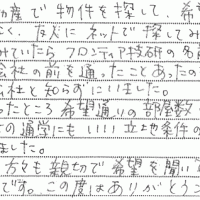 動産で物件を探して、希
なく、なにに ネットで探してみ
みていたら フロンティア技研の名前
会社の前を通ったことあったの
会社と知らずにいました。
たところ 希望通りの部屋数
の通学にも いい立地条件の
ました。
方々も親切で希望を聞い
です。この度はありがとうご